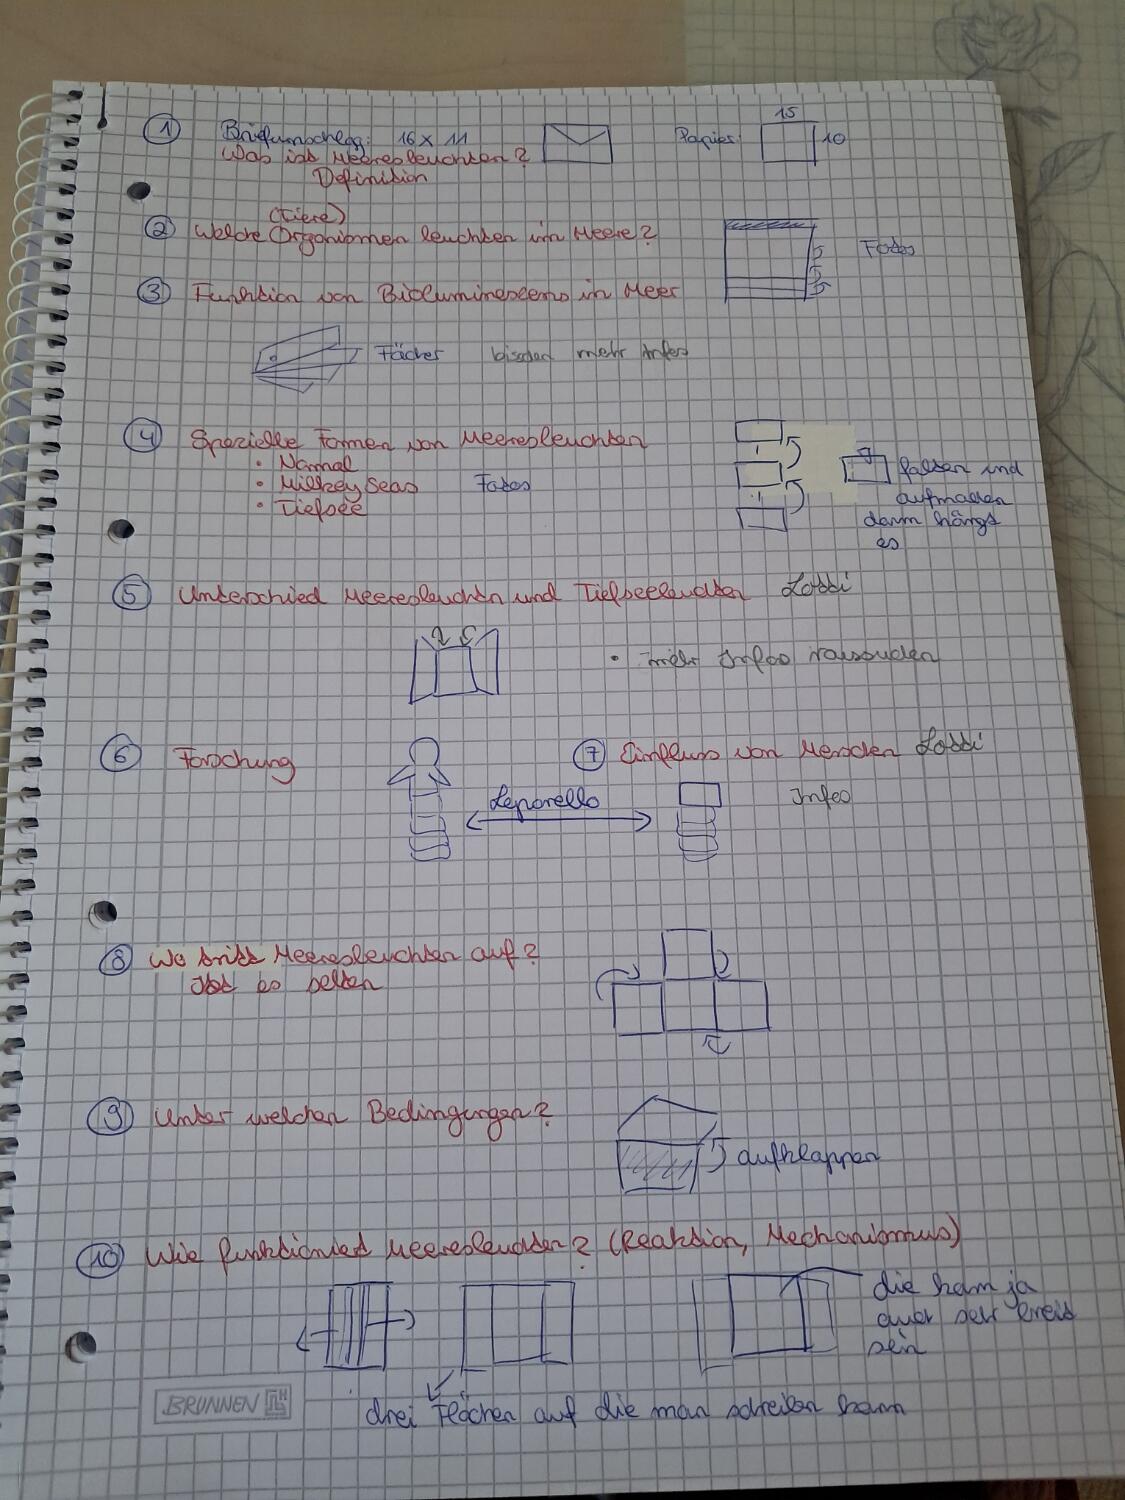 ① Briefumschlag: 16 x 11 Papier: 15 10
Was ist Meeresleuchten?
Definition
(Tiere)
② Welche Organismen leuchten im Meere? Fotos
③ Funktion von Biolumineszens in Meer
Fächer bisschen mehr Infos
④ Spezielle Formen von Meeresleuchten
• Normal
• Milkey Seas Fotos
• Tiefsee
falten und
aufmachen
dann hängt
es
⑤ Unterschied Meeresleuchten und Tiefseeleuchten Lotti
• mehr Infos raussuchen
⑥ Forschung ⑦ Einfluss von Menschen Lotti
Leporello Infos
⑧ Wo tritt Meeresleuchten auf?
Ist es selten
⑨ Unter welchen Bedingungen?
aufklappen
⑩ Wie funktioniert Meeresleuchten? (Reaktion, Mechanismus)
die kann ja
auch sehr breit
sein
drei Flächen auf die man schreiben kann
BRUNNEN